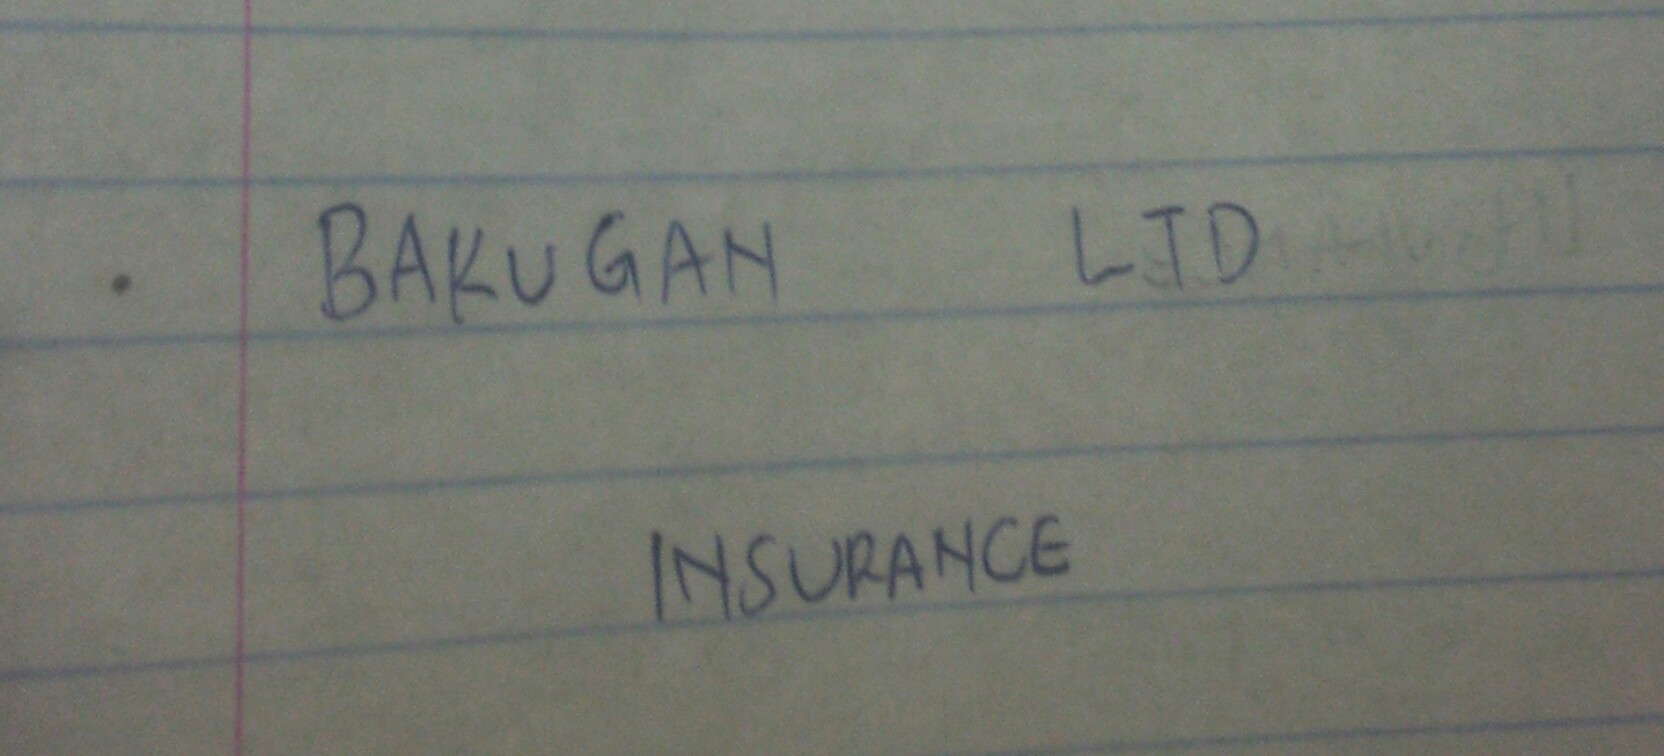 BAKUGAN LTD
INSURANCE